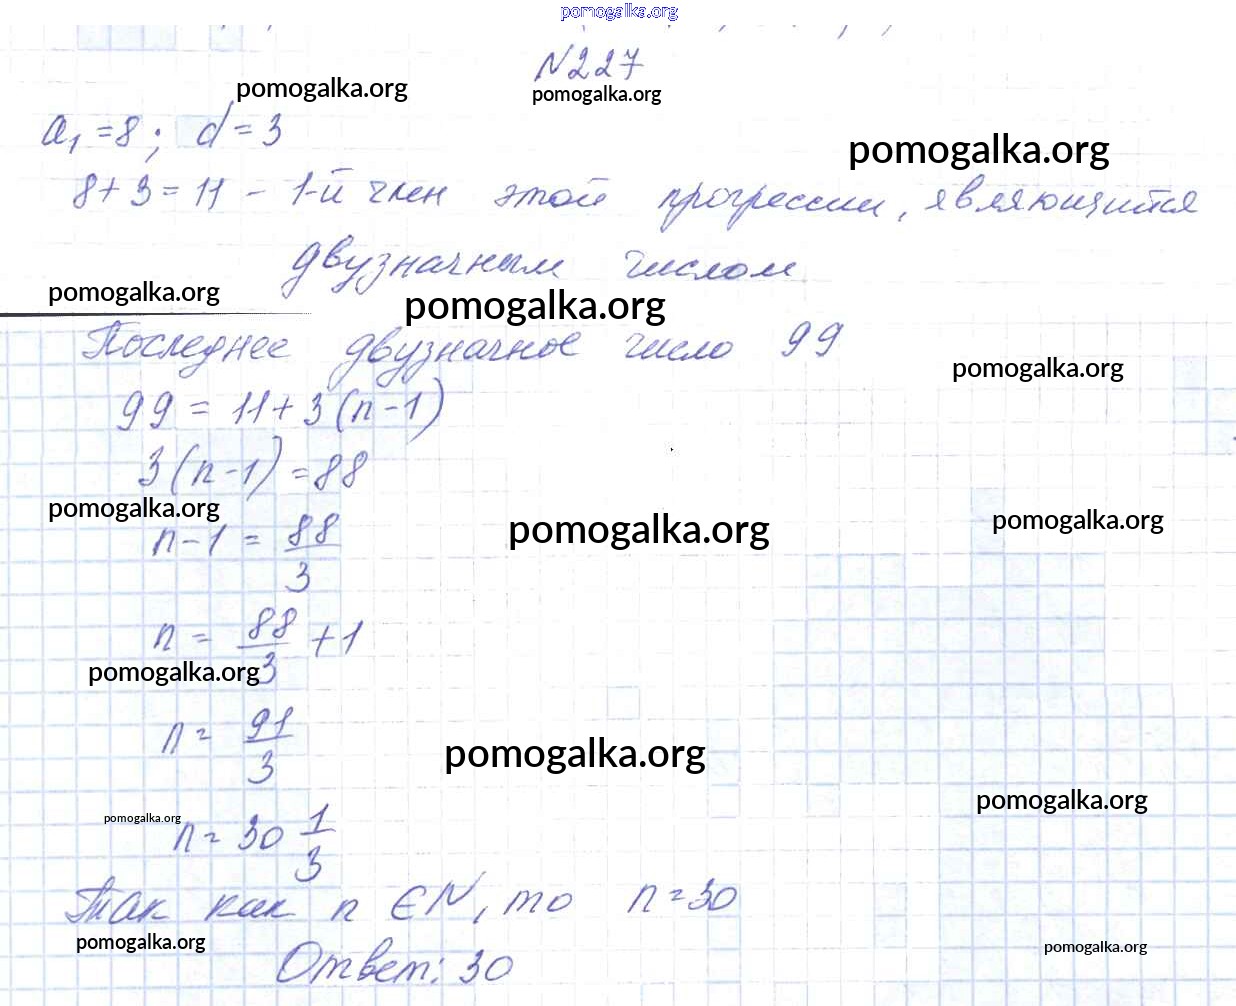 pomogalka.org
N227
pomogalka.org
pomogalka.org
a₁ = 8; d = 3
pomogalka.org
8 + 3 = 11 - 1-й член этой прогрессии, являющийся
двузначным числом
pomogalka.org
pomogalka.org
Последнее двузначное число 99
pomogalka.org
99 = 11 + 3 (n - 1)
3 (n - 1) = 88
pomogalka.org
pomogalka.org
pomogalka.org
n - 1 = 88/3
n = 88/3 + 1
pomogalka.org
n = 91/3
pomogalka.org
pomogalka.org
pomogalka.org
n = 30 1/3
Так как n ∈ N, то n = 30
pomogalka.org
pomogalka.org
Ответ: 30